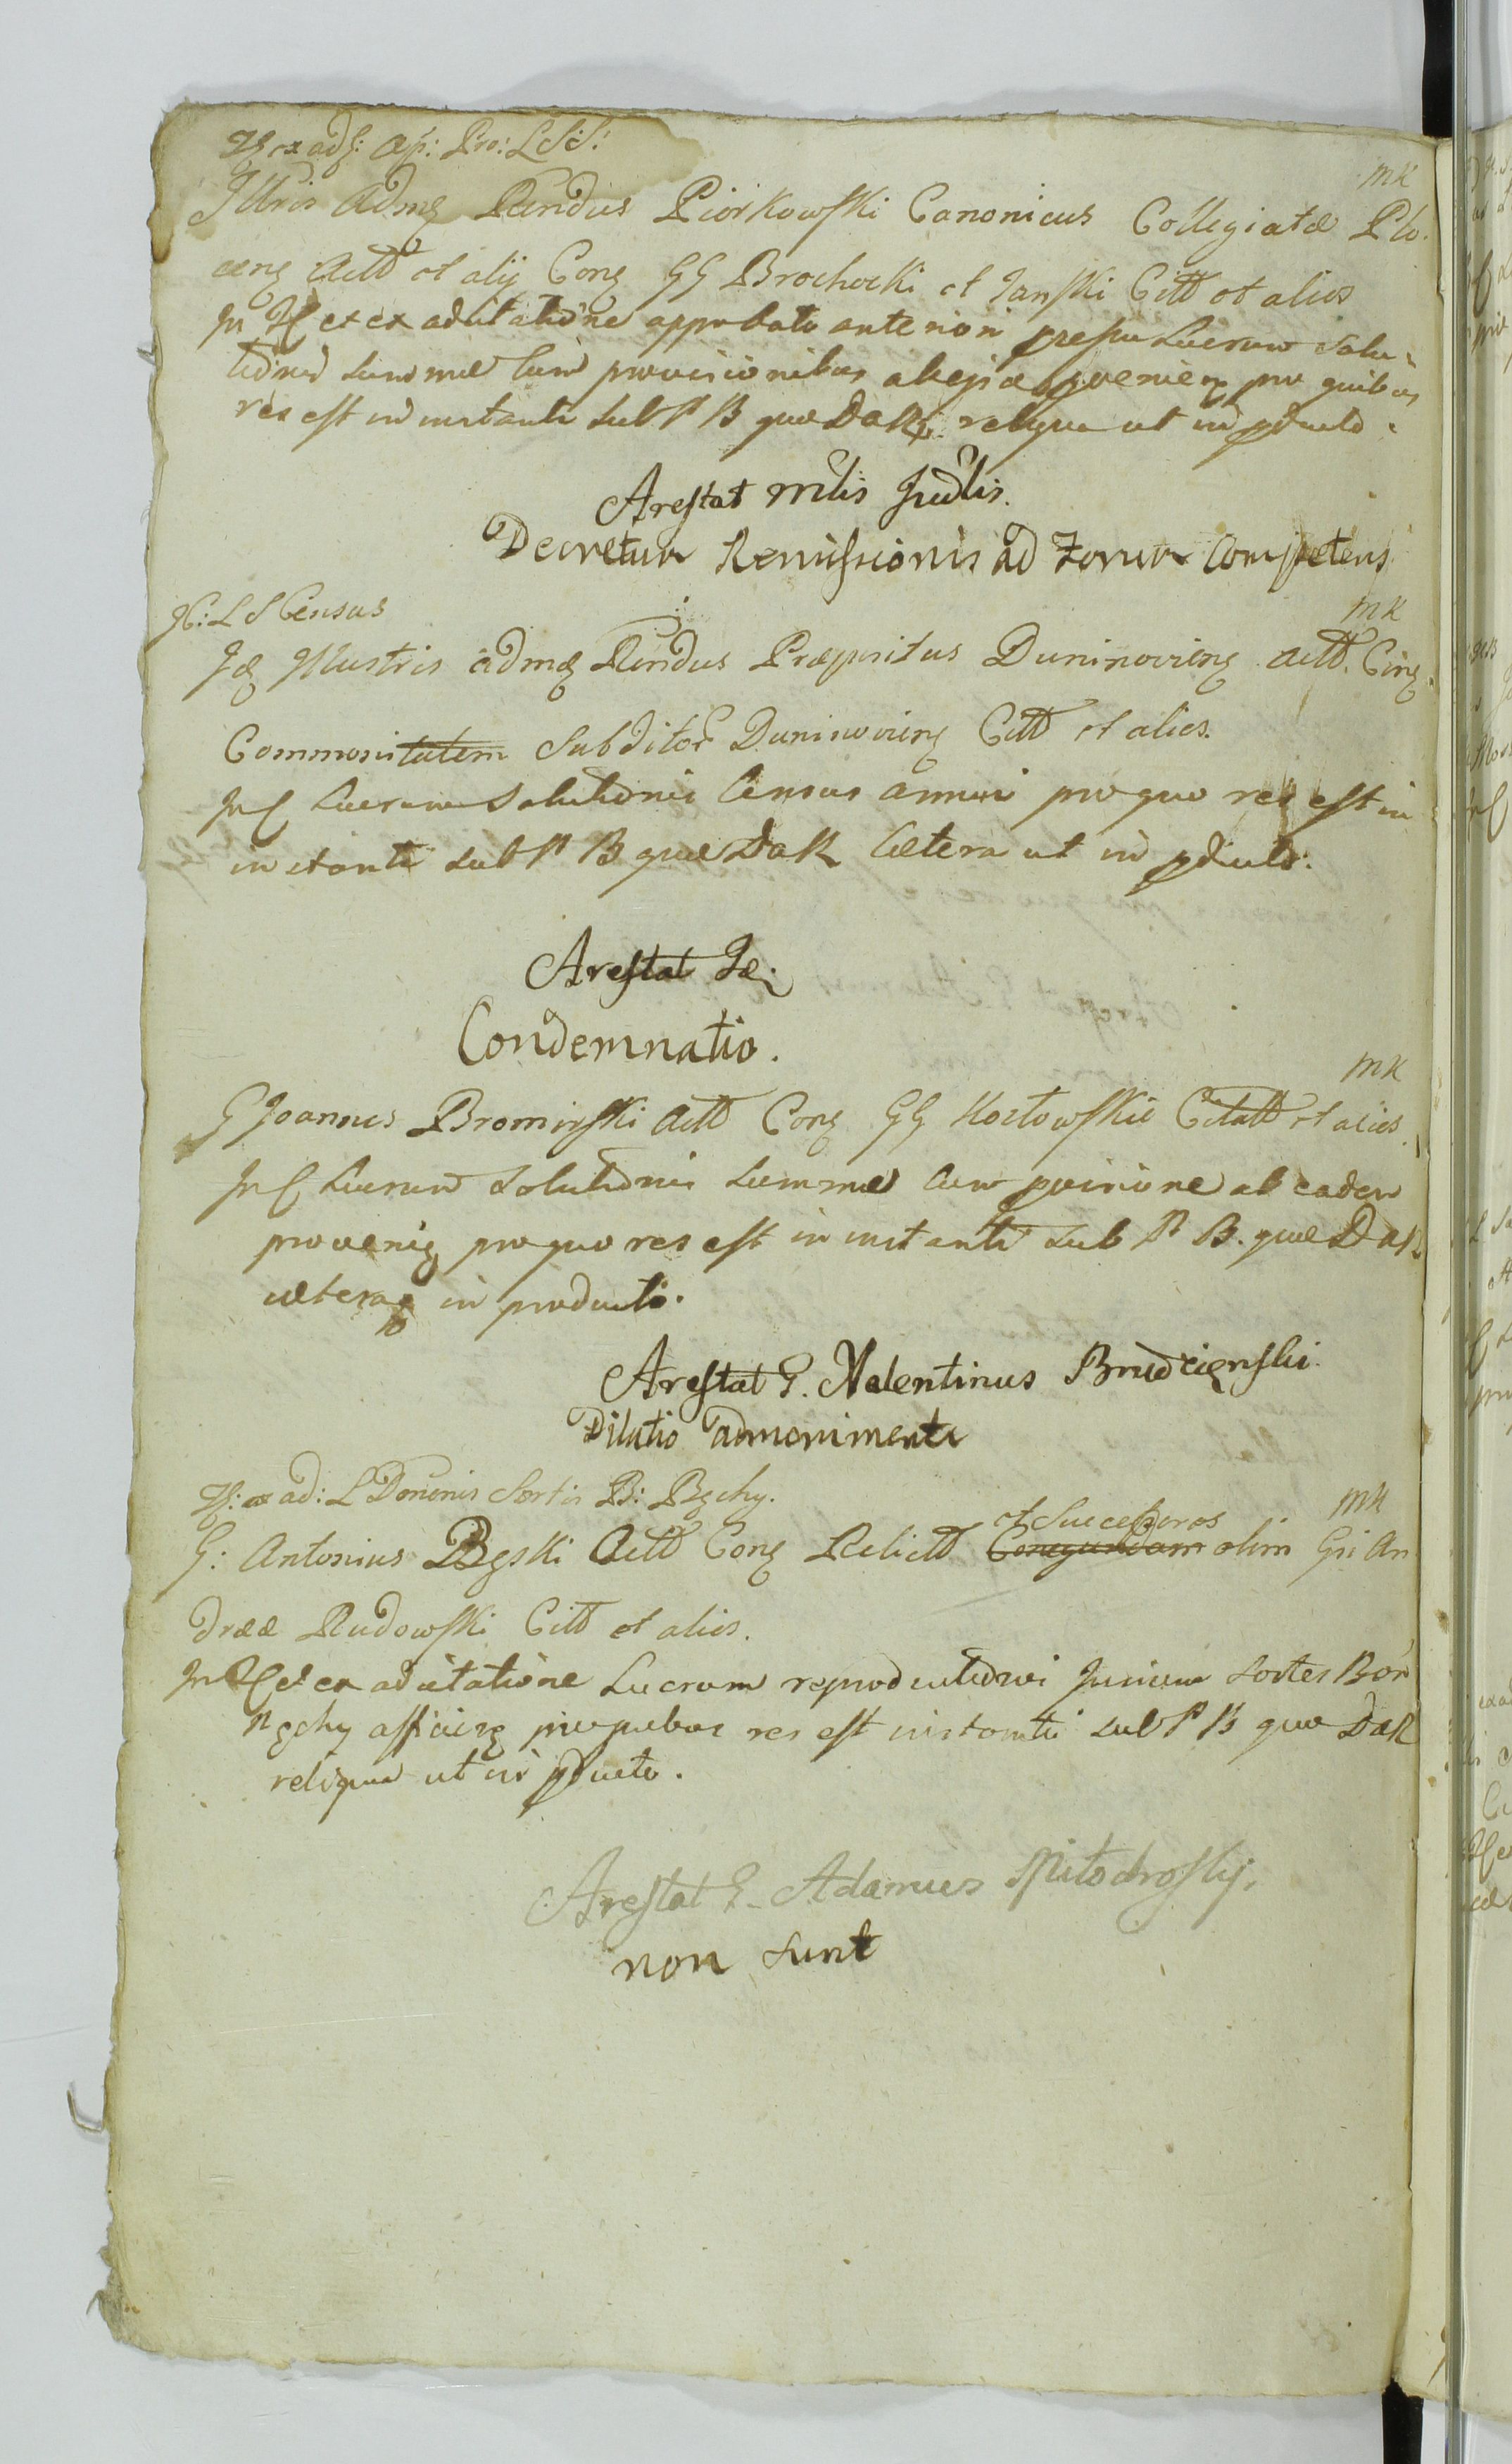 ex ad: Ap: Pro: L S S:
MK
Illris Admq Rendus Piorkowski Canonicus Collegiatæ Plo.
cenς Actt et alij Conς GG Brochocki et Janski Citt et alios
In et ex aditatione approbato anteriori Lucrum Solu-
summæ cum provisionibus ab pro quibus
res est in instanti sub P B quæ DaR reliqua ut in pducto.
Arestat Mlis Judlis.
Decretum Remissionis ad Forum Competens
MK
H: L S Census
Idę Illustris admq Rendus Præpositus Duninovienς Actt. Conς
Commonitatem Subditor Duninovienς Citt et alios.
In Lucrum Solutionis Census annui pro quo res est in
instanti sub P B quæ DaR Cætera ut in pducto.
Arestat Idę
Condemnatio.
MK
G Joannes Bromirski Actt Conς GG Kozłowskie Citatt et alios.
In Lucrum Solutionis Summæ cum pvisione ab eadem
provenię pro quo res est in instanti sub P B. quæ DaR
cætera in producto.
Arestat G. Valentinus Brudcięnski.
Dilatio admonimenti
: ex ad: L Dononis Sortis B: Bęchy.
MK
et Successores
G: Antonius Bęski Actt Conς Relictt Conegundam olim Gsi An
dreæ Rudowski Citt et alios.
In et ex aditatione Lucrum reproductionis Jurium Sortes Bon
Bęchy pro quibus res est instanti sub P B quæ DaR
reliqua ut in pducto.
Arestat G. Adamus
non sunt